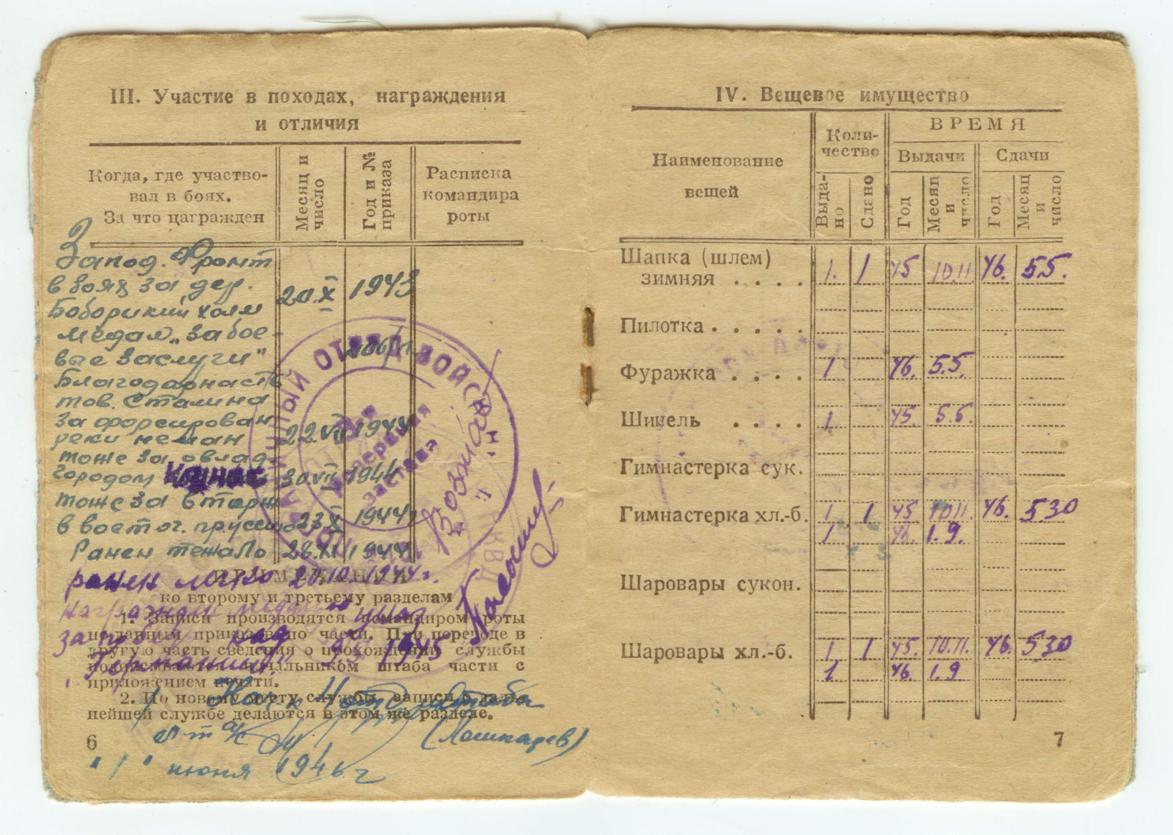 III. Участие в походах, награждения
и отличия
Когда, где участво-
вал в боях.
За что награжден
Месяц и
число
Год и №
приказа
Расписка
командира
роты
Запод. Фронт
в боях за дер.
20.X 1943
медаль „За бое-
вые заслуги"
Благодарность
тов. Сталина
за форсирован
реки неман
22.VII 1944
тоже за овлад
городом
30.VII 1944
тоже за вторж
в вост ог. пруссию
23.X 1944
Ранен тежало 28.XI 1944
ранен легко 20.10.1944г.
награжден медалью
за победу над
Германией 1945
ко второму и третьему разделам
1. Записи производятся командиром роты
другую часть сведения о прохождении службы
штаба части с
приложением печати.
2. По новому месту службы записи о даль-
нейшей службе делаются в этом же разделе.
6
(Лошкарев)
"1" июня 1946 г
ОТРЯД ВОЙСК
резервная
застава
НКВД
IV. Вещевое имущество
Наименование
вещей
Коли-
чество
ВРЕМЯ
Выдачи
Сдачи
Выда-
но
Сдано
Год
Месяц
и
число
Год
Месяц
и
число
Шапка (шлем)
зимняя . . . . 1. 1 45 10.11 46. 5.5.
Пилотка . . . . .
Фуражка . . . . 1 46. 5.5.
Шинель . . . . 1. 45. 5.5.
Гимнастерка сук.
Гимнастерка хл.-б. 1 1 45 10.11 46. 5 30
1 46. 1.9.
Шаровары сукон.
Шаровары хл.-б. 1 1 45. 10.11. 46. 5 30
1 46. 1.9
7